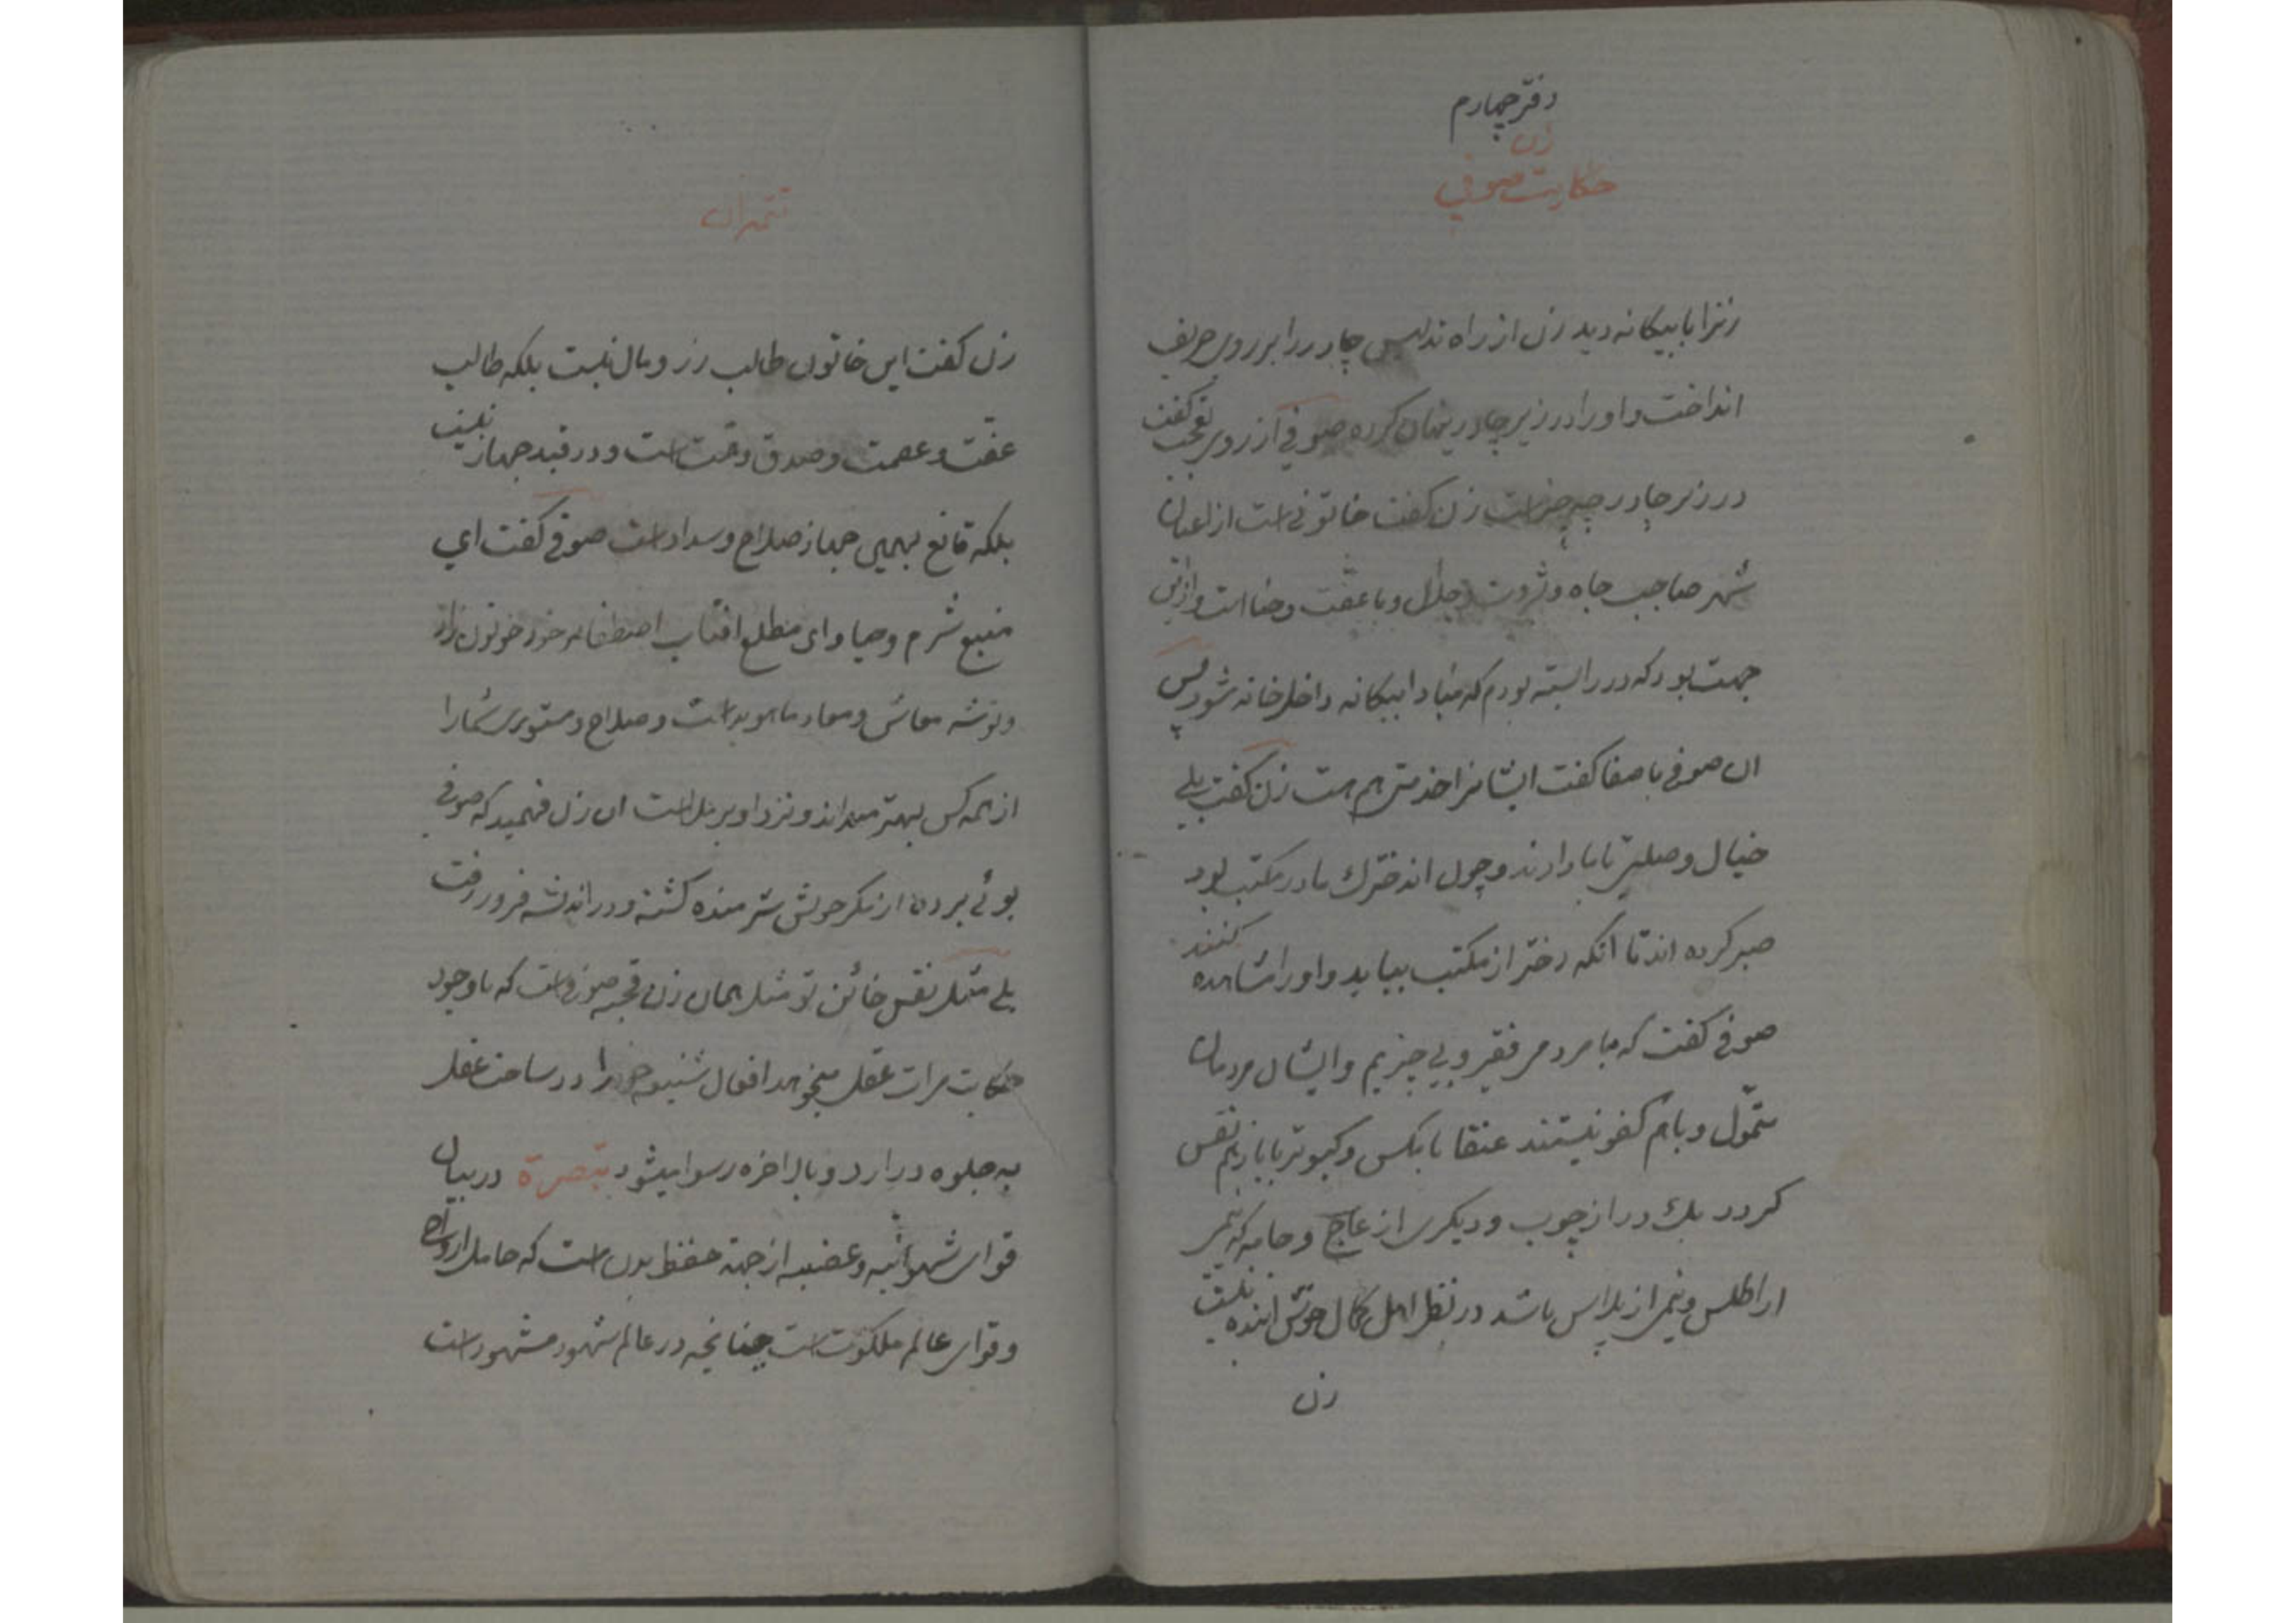 دفتر چهارم
حکایت زن صوفی
زنرا با بیکانه دید زن از راه تدلیس چادر را بر روی حریف
انداخت و او را در زیر چادر پنهان کرده صوفی از روی تعجب کفت
در زیر چادر چه چیز است زن کفت خاتونی است از اعیان
شهر صاحب جاه و ثروت و جلال و با عفت و حیا است و از این
جهت بود که در را بسته بودم که مبادا بیکانه داخل خانه شود پس
ان صوفی با صفا کفت ایشانرا خدمتی هم هست زن کفت بلی
خیال وصلتی با ما دارند و چون دخترك ما در مکتب بود
صبر کرده اند تا انکه دختر از مکتب بیاید و او را مشاهده کنند
صوفی کفت که ما مردم فقیر و بی چیزیم و ایشان مردمان
متمول و با هم کفو نیستند عنقا با مکس و کبوتر با باز هم نفس
کردد یك در از چوب و دیکری از عاج و جامه که نیمی
از اطلس و نیمی از پلاس باشد در نظر اهل کمال خوش اینده نیست
زن
تتمه ان
زن کفت این خاتون طالب زر و مال نیست بلکه طالب
عفت و عصمت و صدق و همت است و در قید جهاز نیست
بلکه قانع بهمین جهاز صلاح و سداد است صوفی کفت ای
منبع شرم و حیا و ای مطلع افتاب اصطفا خود خوتون از
و توشه معاش و معاد ما هویداست و صلاح و مستوری شما را
از همه کس بهتر میداند و نزد او برملا است ان زن فهمید که صوفی
بوئی برده از مکر خویش شرمنده کشته و در اندیشه فرو رفت
بلی مثل نفس خائن تو مثل همان زن قحبه صوفی است که با وجود
حکایت مرات عقل میخواهد افعال شنیعه خود را در ساحت عقل
به جلوه در ارد و بالاخره رسوا میشود تبصرة در بیان
قوای شهوانیه و غضبیه از جهة حفظ بدن است که حامل ارواح
و قوای عالم ملکوت است چنانچه در عالم شهود مشهود است